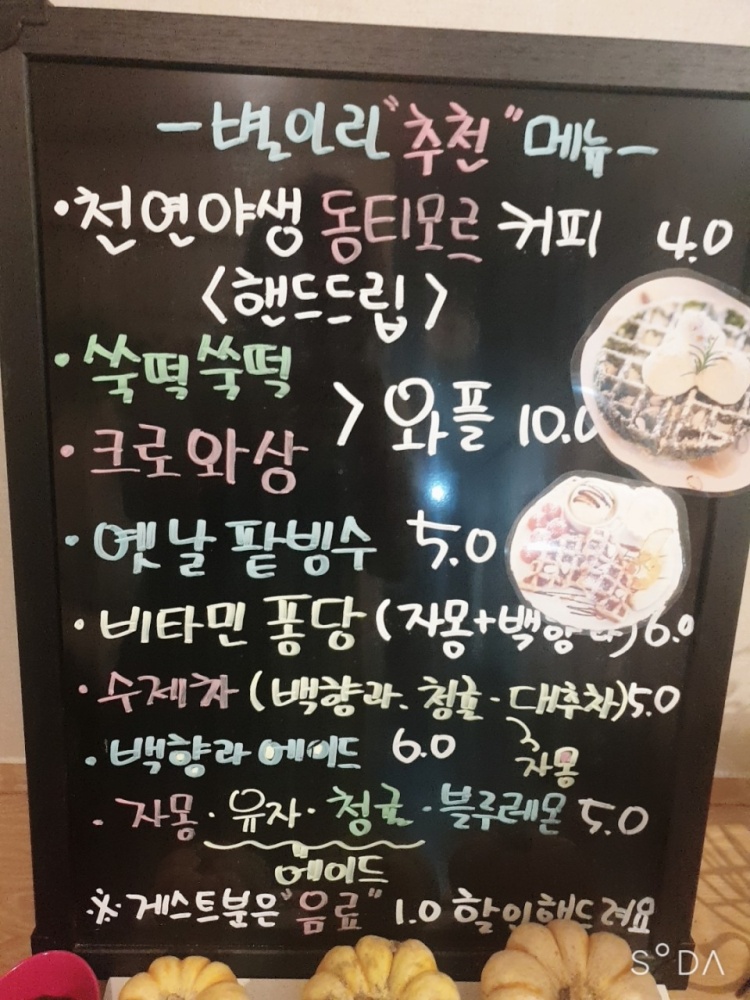 -별이리 "추천" 메뉴-
·천연야생 동티모르 커피 4.0
<핸드드립>
·쑥떡쑥떡
> 와플 10.0
·크로와상
·옛날 팥빙수 5.0
·비타민 퐁당 (자몽+백향과) 6.0
·수제차 (백향과. 청귤·대추차) 5.0
자몽
·백향과 에이드 6.0
·자몽·유자·청귤·블루레몬 5.0
에이드
※게스트분은 "음료" 1.0 할인해드려요
SODA